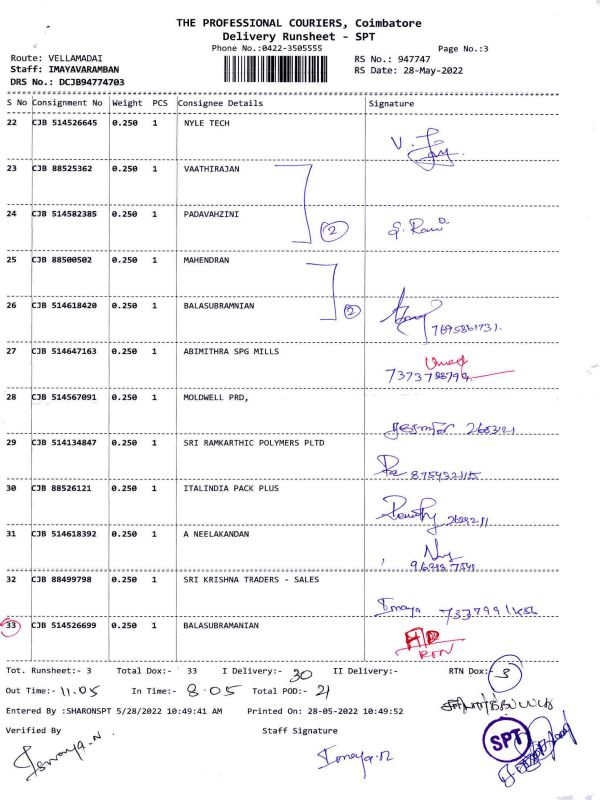 THE PROFESSIONAL COURIERS, Coimbatore
Delivery Runsheet - SPT
Phone No.:0422-3505555 Page No.:3
Route: VELLAMADAI RS No.: 947747
Staff: IMAYAVARAMBAN RS Date: 28-May-2022
DRS No.: DCJB94774703
S No Consignment No Weight PCS Consignee Details Signature
22 CJB 514526645 0.250 1 NYLE TECH
23 CJB 88525362 0.250 1 VAATHIRAJAN
24 CJB 514582385 0.250 1 PADAVAHZINI
2
25 CJB 88500502 0.250 1 MAHENDRAN
26 CJB 514618420 0.250 1 BALASUBRAMNIAN
2
7695861731.
27 CJB 514647163 0.250 1 ABIMITHRA SPG MILLS
28 CJB 514567091 0.250 1 MOLDWELL PRD,
29 CJB 514134847 0.250 1 SRI RAMKARTHIC POLYMERS PLTD
30 CJB 88526121 0.250 1 ITALINDIA PACK PLUS
31 CJB 514618392 0.250 1 A NEELAKANDAN
32 CJB 88499798 0.250 1 SRI KRISHNA TRADERS - SALES
Imaya
33 CJB 514526699 0.250 1 BALASUBRAMANIAN
RTN
Tot. Runsheet:- 3 Total Dox:- 33 I Delivery:- 30 II Delivery:- RTN Dox:- 3
Out Time:- 11.05 In Time:- 8.05 Total POD:- 21
Entered By :SHARONSPT 5/28/2022 10:49:41 AM Printed On: 28-05-2022 10:49:52
Verified By Staff Signature
SPT